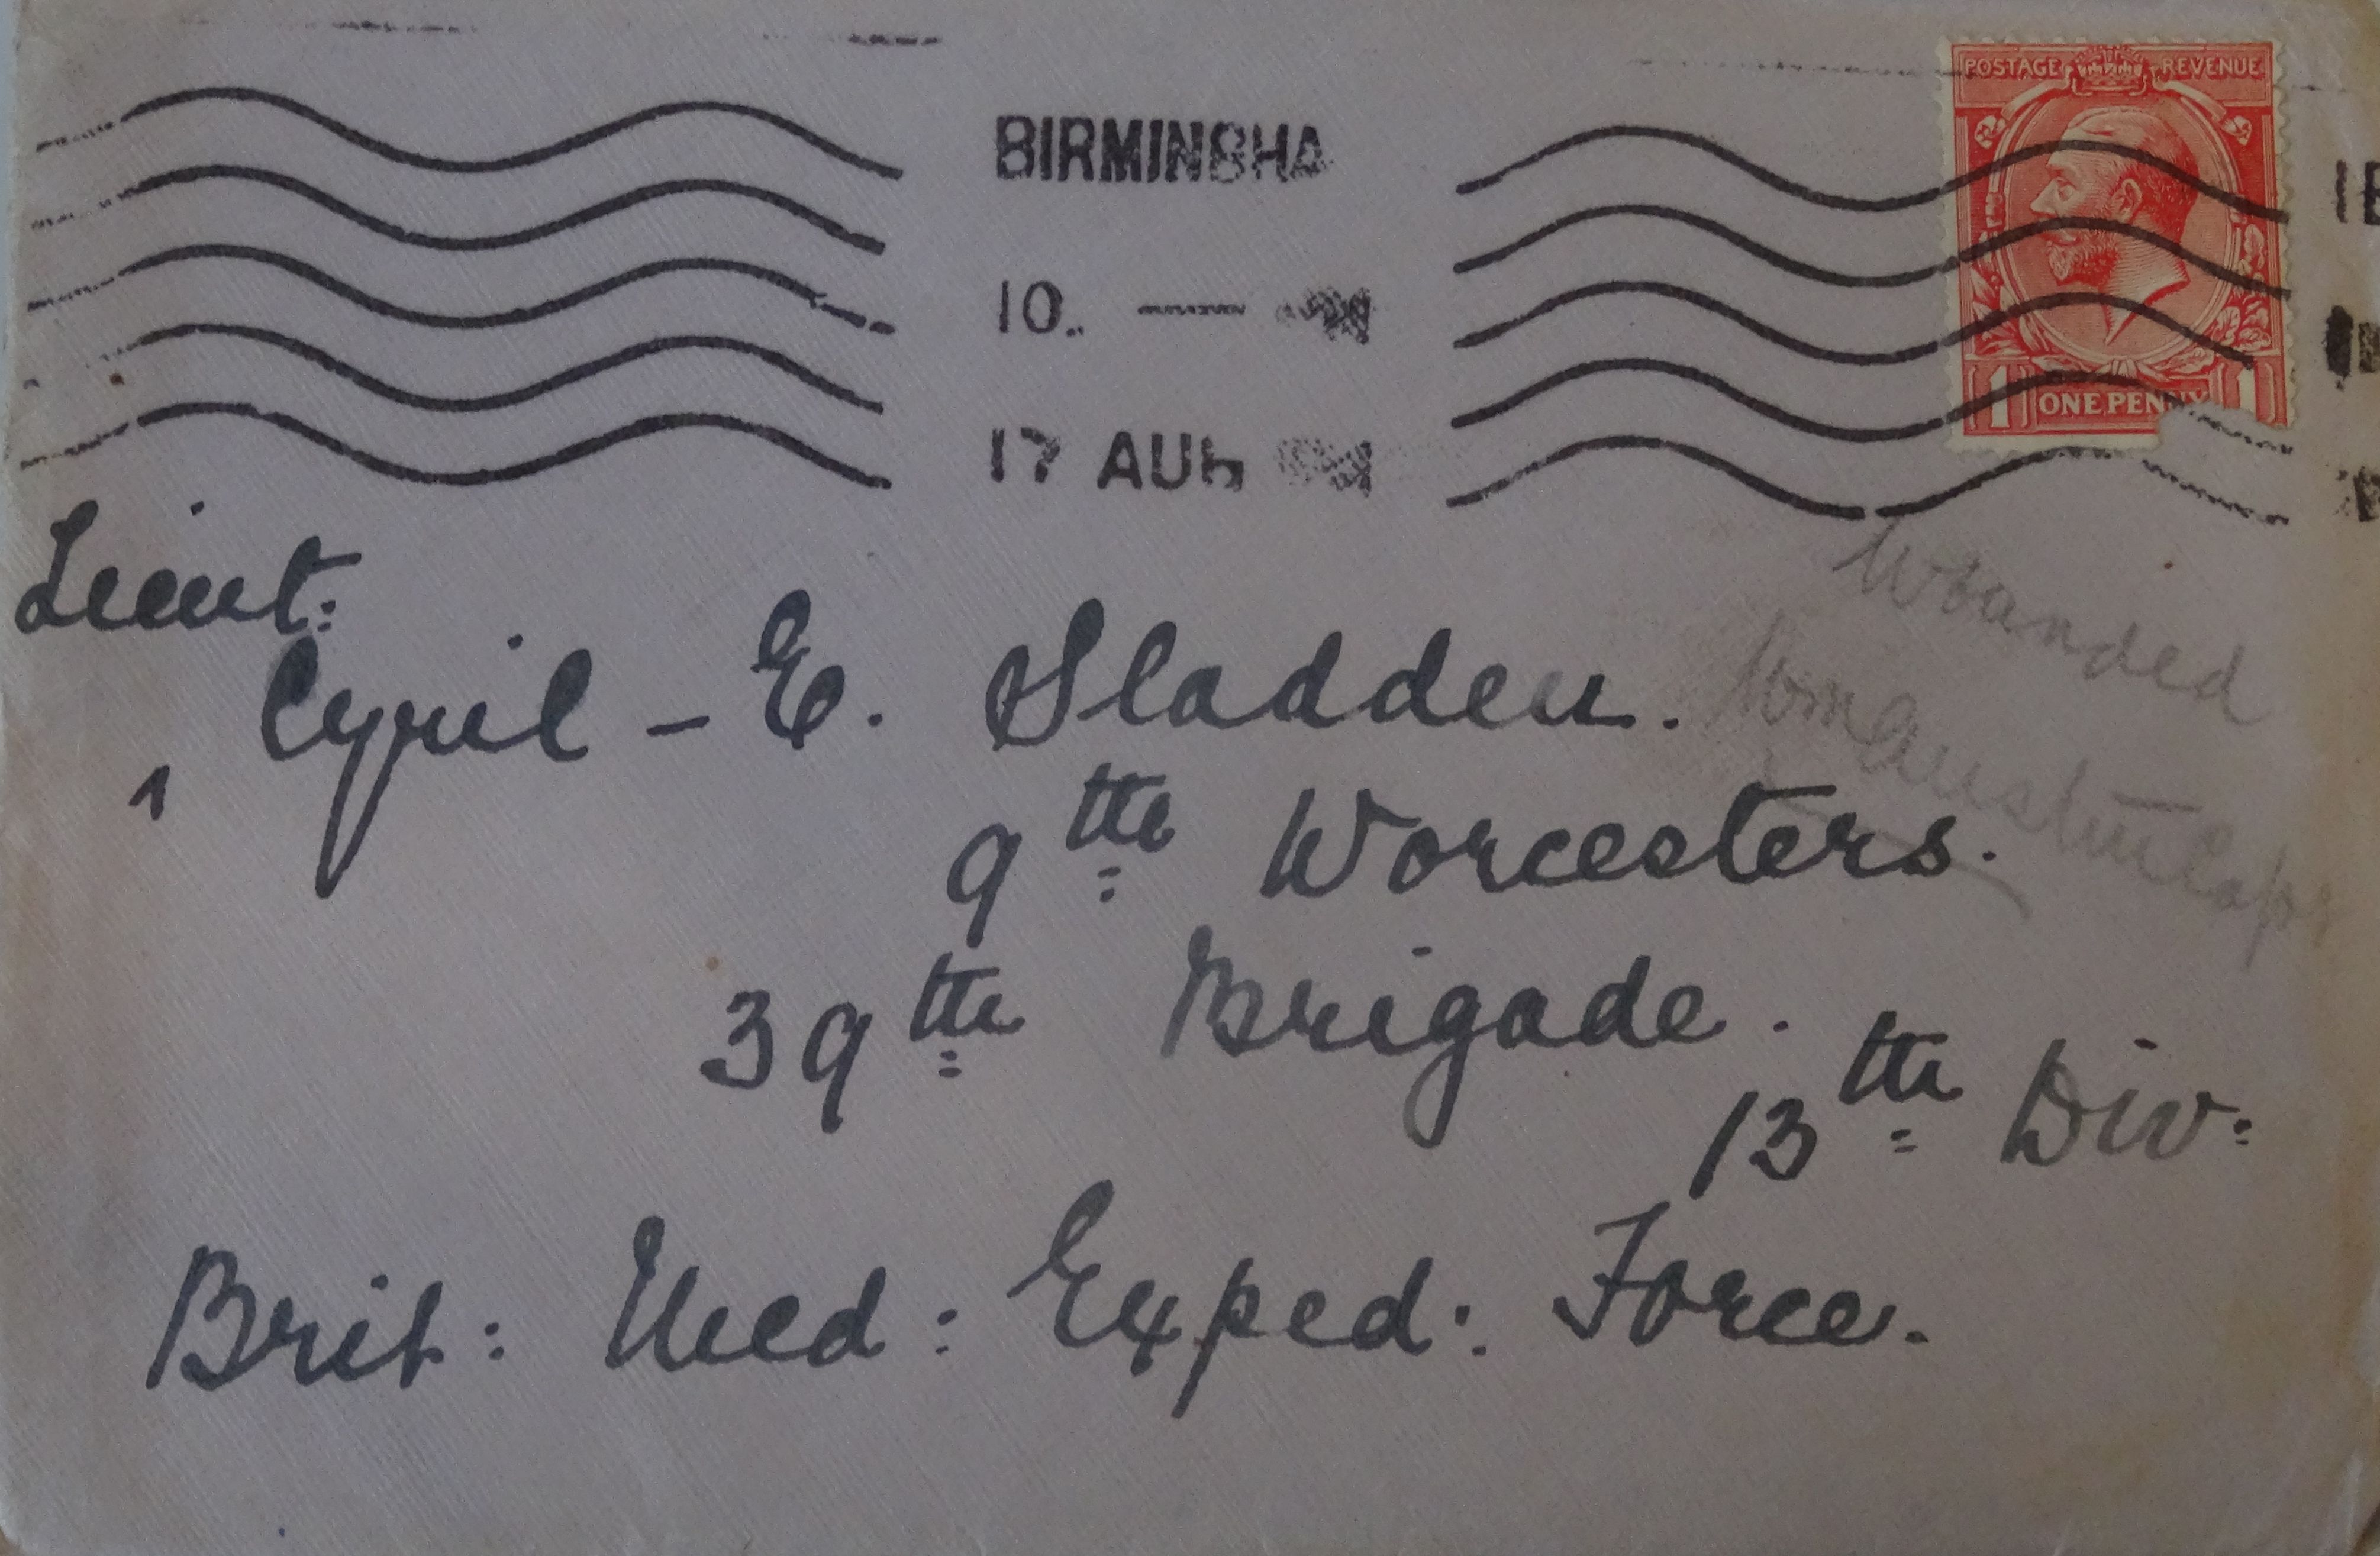 POSTAGE REVENUE
BIRMINGHA
10. —
17 AUG
1 ONE PENNY 1
Lieut:
Cyril - E. Sladden.
9th Worcesters.
39th Brigade.
13th Div:
Brit: Med: Exped: Force.
Wounded